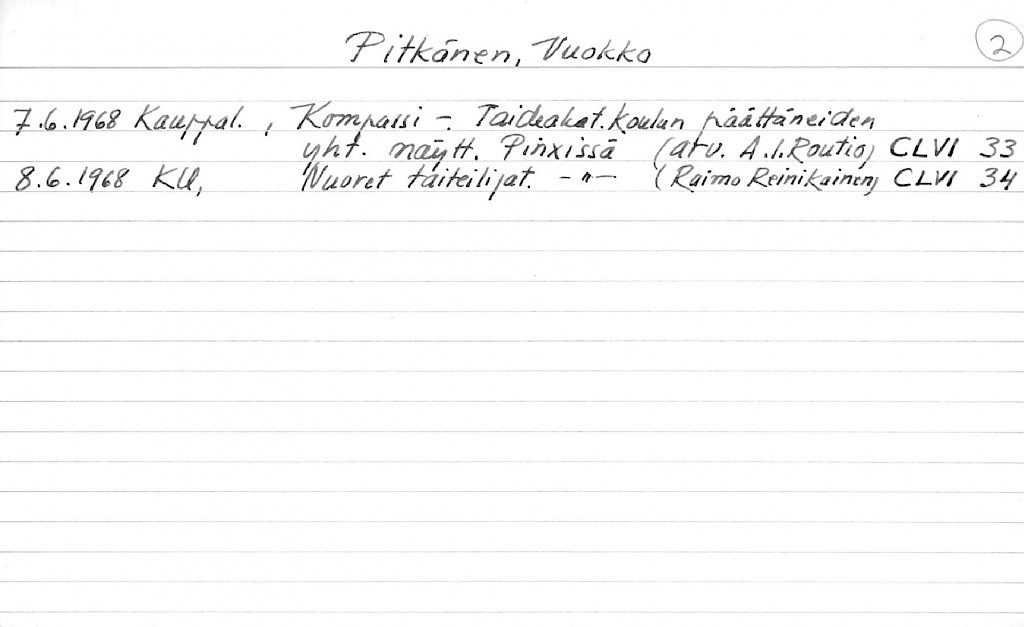 Pitkänen, Vuokko 2
7.6.1968 Kauppal. , Kompassi - Taideakat. koulun päättäneiden
yht. näytt. Pinxissä (arv. A.I. Routio) CLVI 33
8.6.1968 KU, Nuoret taiteilijat. -"- (Raimo Reinikainen) CLVI 34